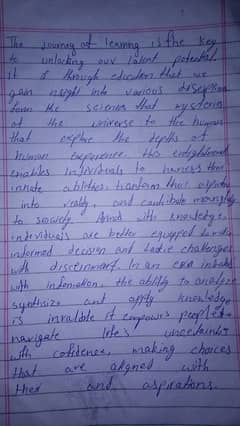 The Journey of learning is the key
to unlocking our latent potential.
It is through education that we
gain insight into various
from the sciences that mysteries
of the universe to the human
that explore the depths of
human experience. this enlightenment
enables individuals to harness their
innate abilities, their
into reality, and contribute meaningfully
to society. Armed with knowledge,
individuals are better equipped to make
informed decision and tackle challenges
with discernment. In an era
with information, the ability to analyze
synthesize and apply knowledge
is it empowers people to
navigate life's uncertainties
with confidence, making choices
that are aligned with
their and aspirations.